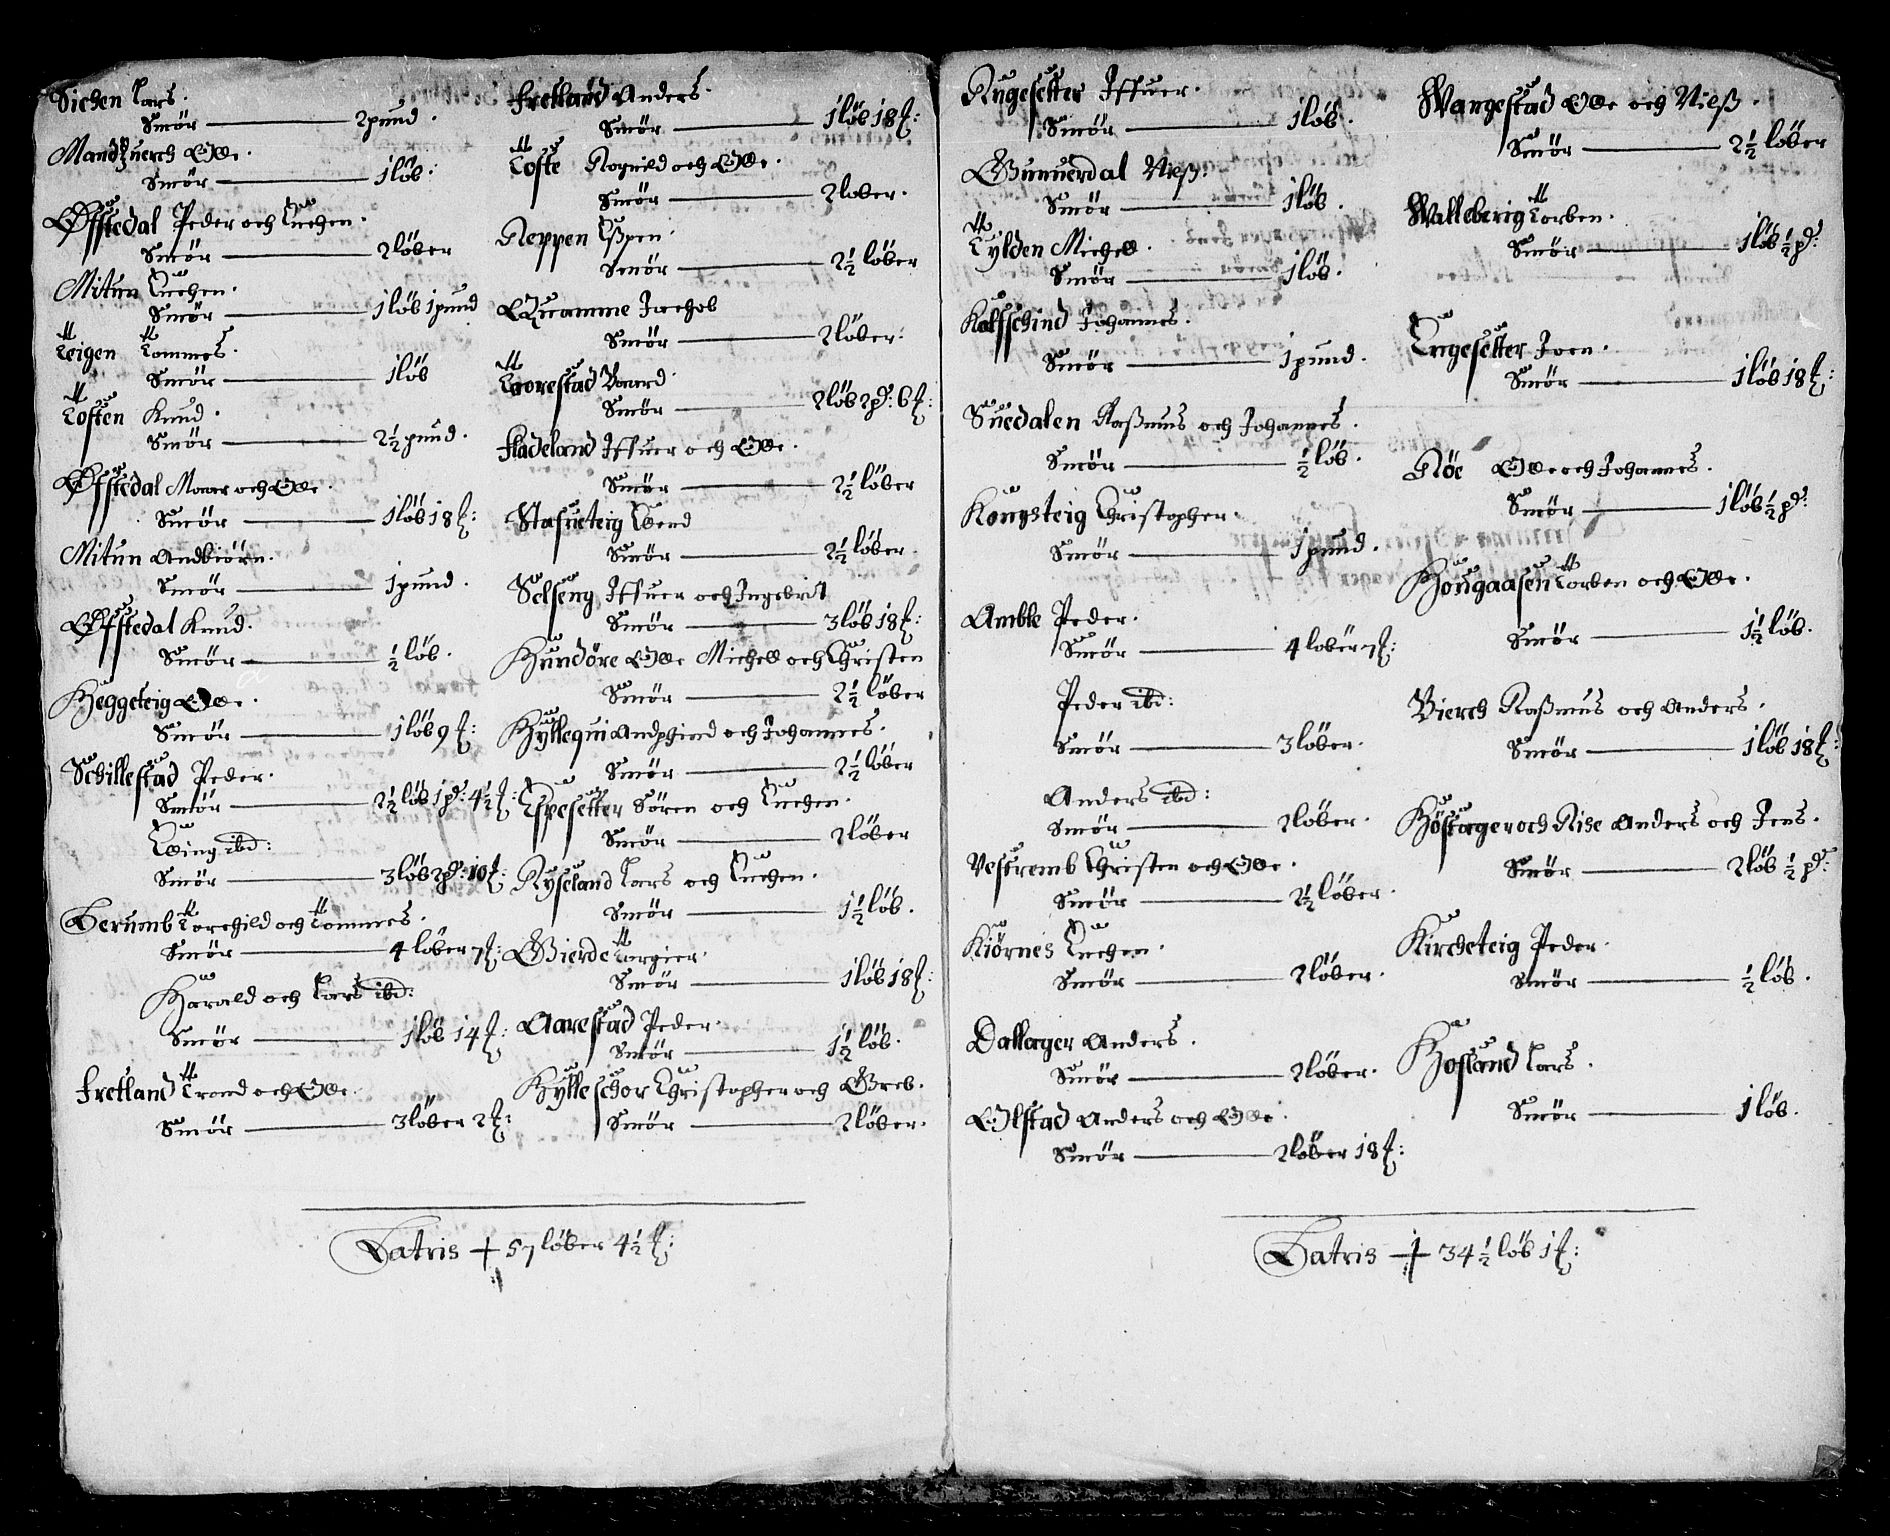 Sichen Lars.
Smör — 2 pund.
Mandzuerch Olle.
Smör — 1 löb:
Øffstedal Peder och Luchen.
Smör — 2 löber
Mitun Luchen.
Smör — 1 löb 1 pund
Teigen Tommes.
Smör — 1 löb
Toften Knud.
Smör — 2½ pund.
Øffstedal Maar och Olle.
Smör — 1 löb 18 ℔:
Mitun Andbiörn.
Smör — 1 pund.
Øffstedal Knud.
Smör — ½ löb.
Heggeteig Olle.
Smör — 1 löb 9 ℔:
Schillestad Peder.
Smör — 2½ löb 1 pd: 4½ ℔:
Elling ibd:
Smör — 3 löb 2 pd: 10 ℔:
Berumb Torchild och Tommes.
Smör — 4 löber 7 ℔:
Harald och Lars ibd:
Smör — 1 löb 14 ℔:
Fretland Trond och Olle.
Smör — 3 löber 2 ℔:
Fretland Anders.
Smör — 1 löb 18 ℔:
Tofte Rognild och Olle.
Smör — 2 lober.
Reppen Eßpen.
Smör — 2½ löber
Quamme Jachob
Smör — 2 löber.
Torestad Baard.
Smör — 2 löb 2 pd: 6 ℔:
Fladeland Iffuer och Olle.
Smör — 2½ löber
Stafueteig Ellend
Smör — 2½ löber.
Selseng Iffuer och Ingebrit
Smör — 3 löb 18 ℔:
Hundöre Olle Michell och Christen
Smör — 2½ löber
Hyllequi Andphind och Johannes.
Smör — 2½ löber
Espesetter Sören och Luchen.
Smör — 2 löber
Ryseland Lars och Luchen.
Smör — 1½ löb.
Gierde Torgier.
Smör — 1 löb 18 ℔:
Aarestad Peder.
Smör — 1½ löb.
Hylleschor Christopher och Greb.
Smör — 2 löber.
Latris + 57 löber 4½ ℔:
Rugesetter Iffuer.
Smör — 1 löb.
Gunuerdal Nielß.
Smör — 1 löb.
Tylden Michell.
Smör — 1 löb.
Kalffschind Johannes.
Smör — 1 pund.
Suedalen Raßmus och Johannes.
Smör — ½ löb.
Kongsteig Christopher.
Smör — 1 pund.
Amble Peder.
Smör — 4 lober 7 ℔:
Peder ibd:
Smör — 3 löber.
Anders ibd:
Smör — 2 löber.
Vestremb Christen och Olle.
Smör — 2½ löber.
Kiörnes Luchen.
Smör — 2 löber.
Dallager Anders.
Smör — 2 löber.
Olstad Anders och Olle.
Smör — 2 löber 18 ℔:
Wangestad Olle och Nielß.
Smör — 2½ löber
Walleberig Torben.
Smör — 1 löb ½ pd:
Engesetter Joen.
Smör — 1 löb 18 ℔:
Röe Olle och Johannes.
Smör — 1 löb ½ pd:
Hougaasen Torben och Olle.
Smör — 1½ löb.
Bierch Raßmus och Anders.
Smör — 1 löb 18 ℔:
Höstager och Rise Anders och Jens.
Smör — 2 löb ½ pd:
Kircheteig Peder.
Smör — ½ löb.
Hofland Lars.
Smör — 1 löb.
Latris + 34½ löb 1 ℔: